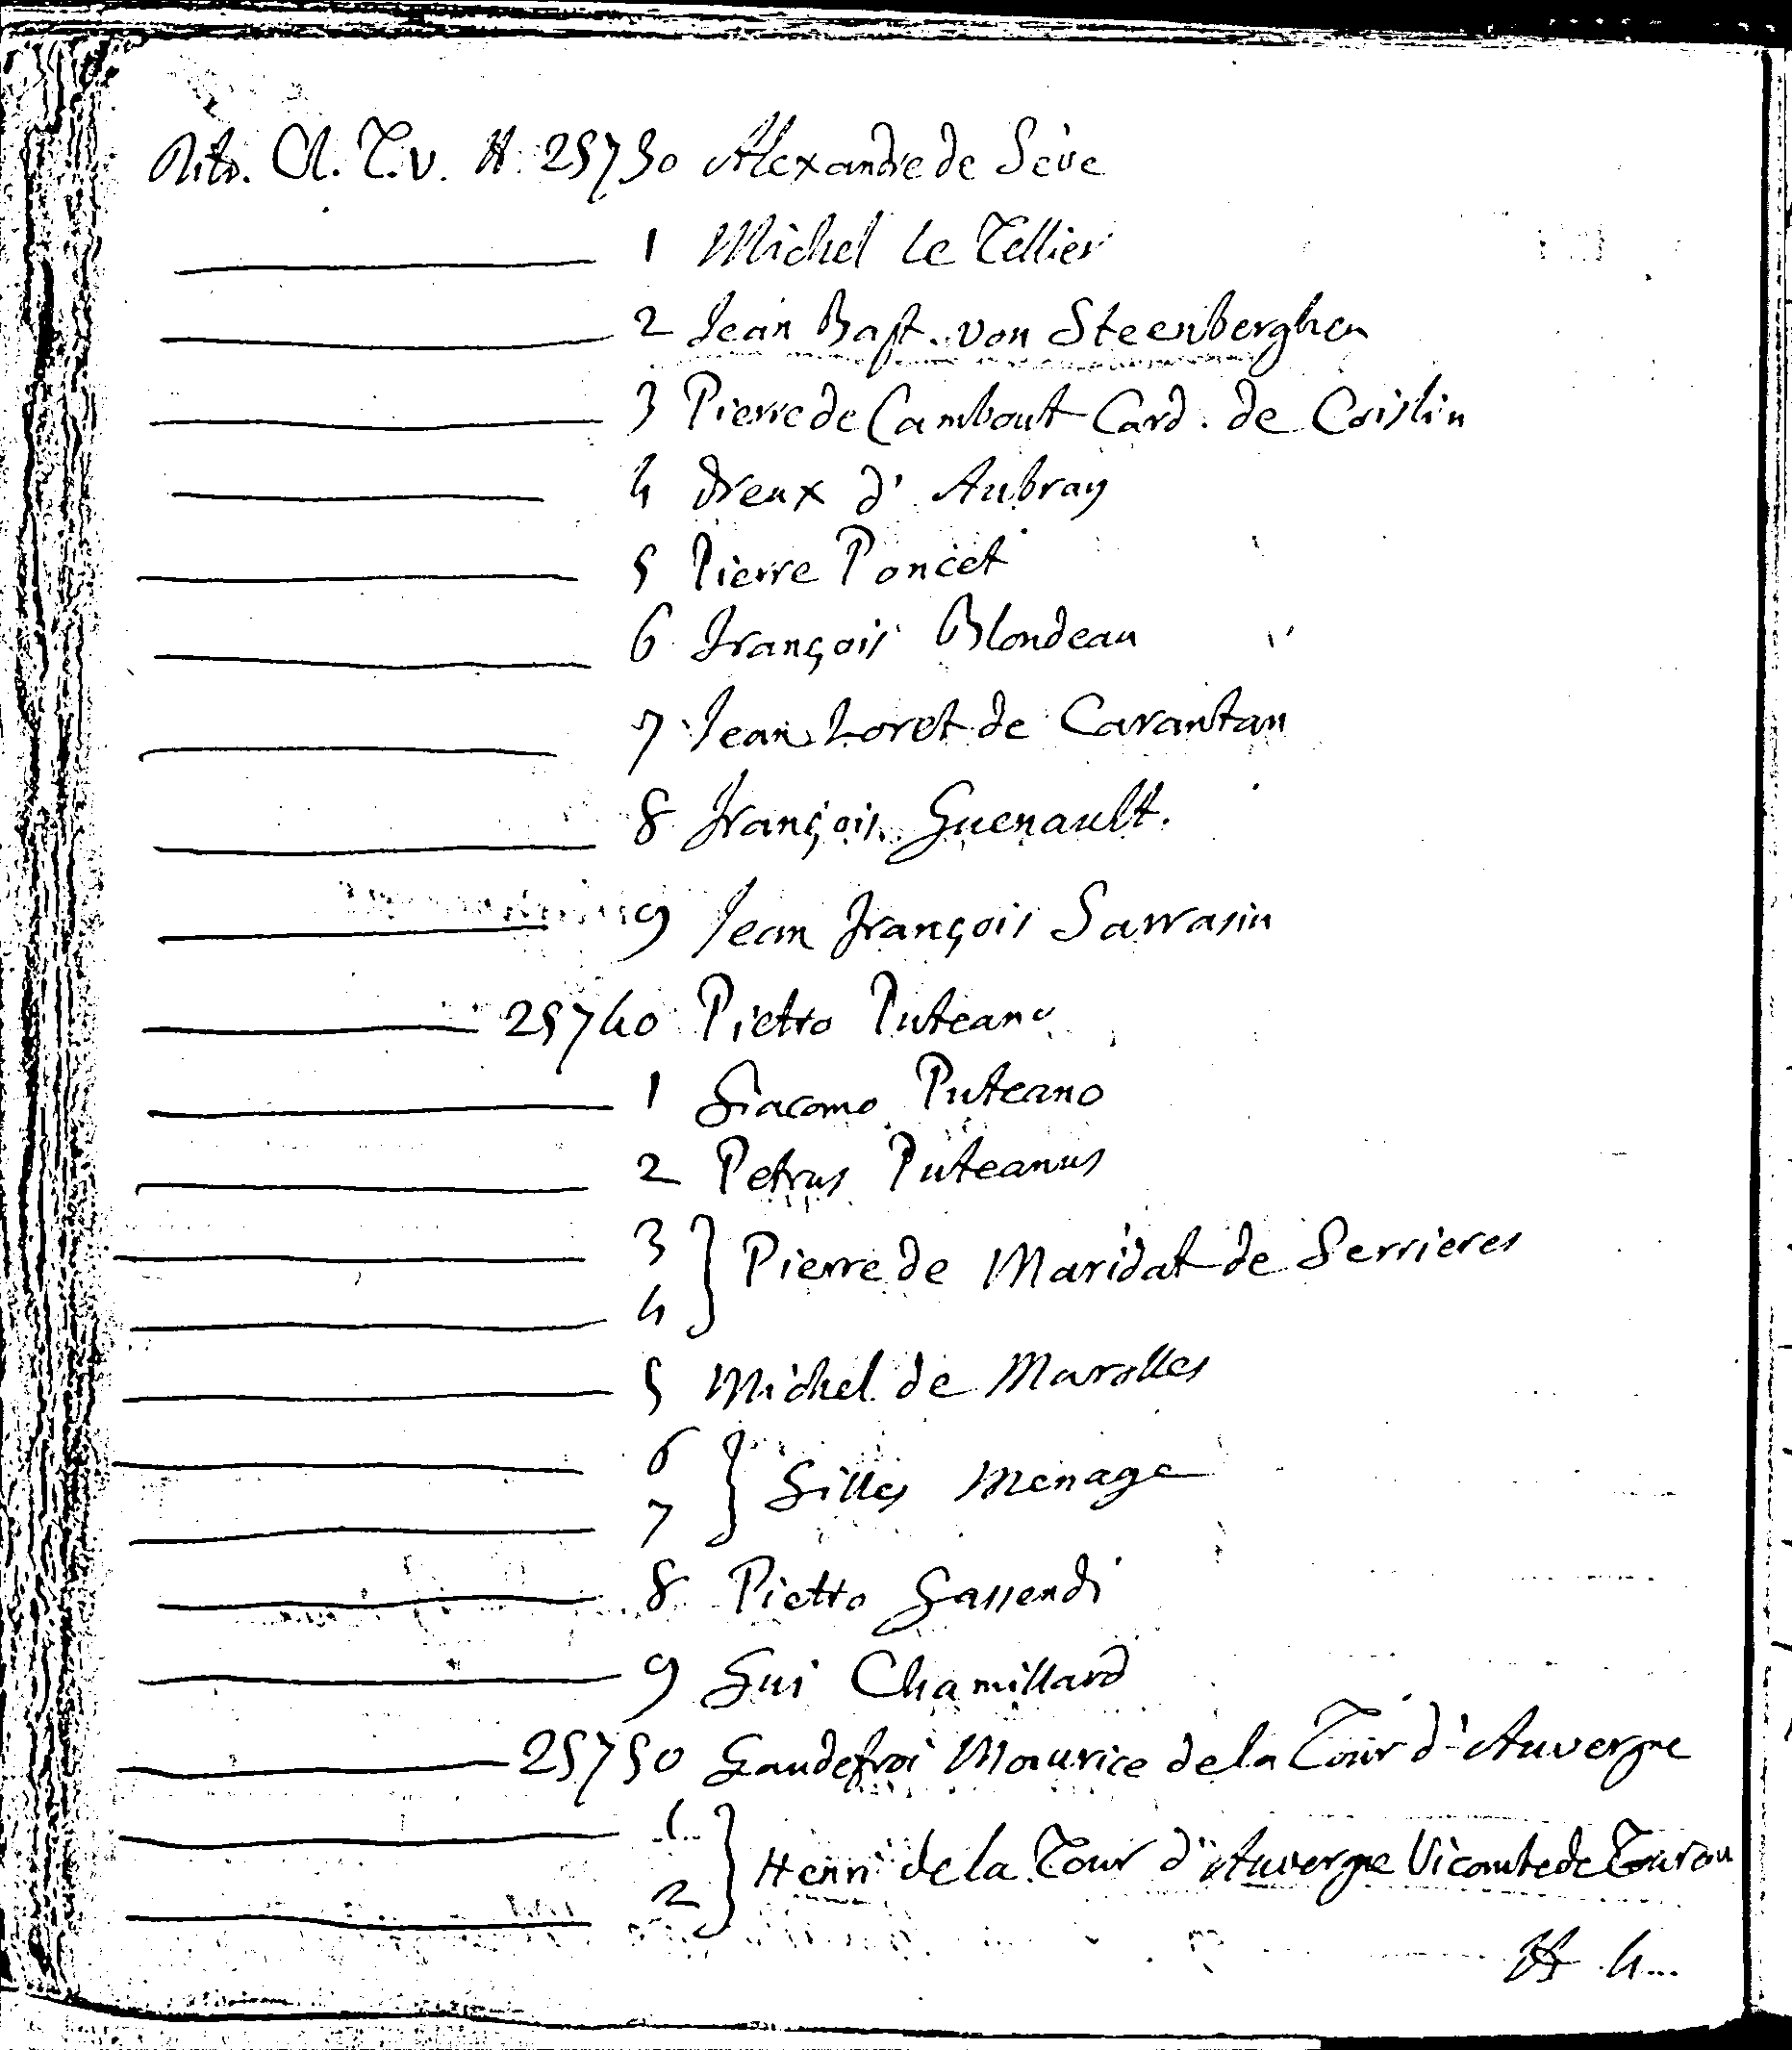 Ritr. Cl. T. V. N. 25730 Alexandre de Seve
1 Michel le Tellier
2 Jean Bapt. von Steenberghen
3 Pierre de Cambout Card. de Coislin
4 Dreux d' Aubray
5 Pierre Poncet
6 François Blondeau
7 Jean Loret de Carantan
8 François Guenault.
9 Jean François Sarrasin
25740 Pietro Puteano
1 Giacomo Puteano
2 Petrus Puteanus
3
4 } Pierre de Maridat de Serrieres
5 Michel de Marolles
6
7 } Gilles Menage
8 Pietro Gassendi
9 Gui Chamillard
25750 Gaudefroi Maurice de la Tour d'Auvergne
1
2 } Henri de la Tour d'Auvergne Vicomte de